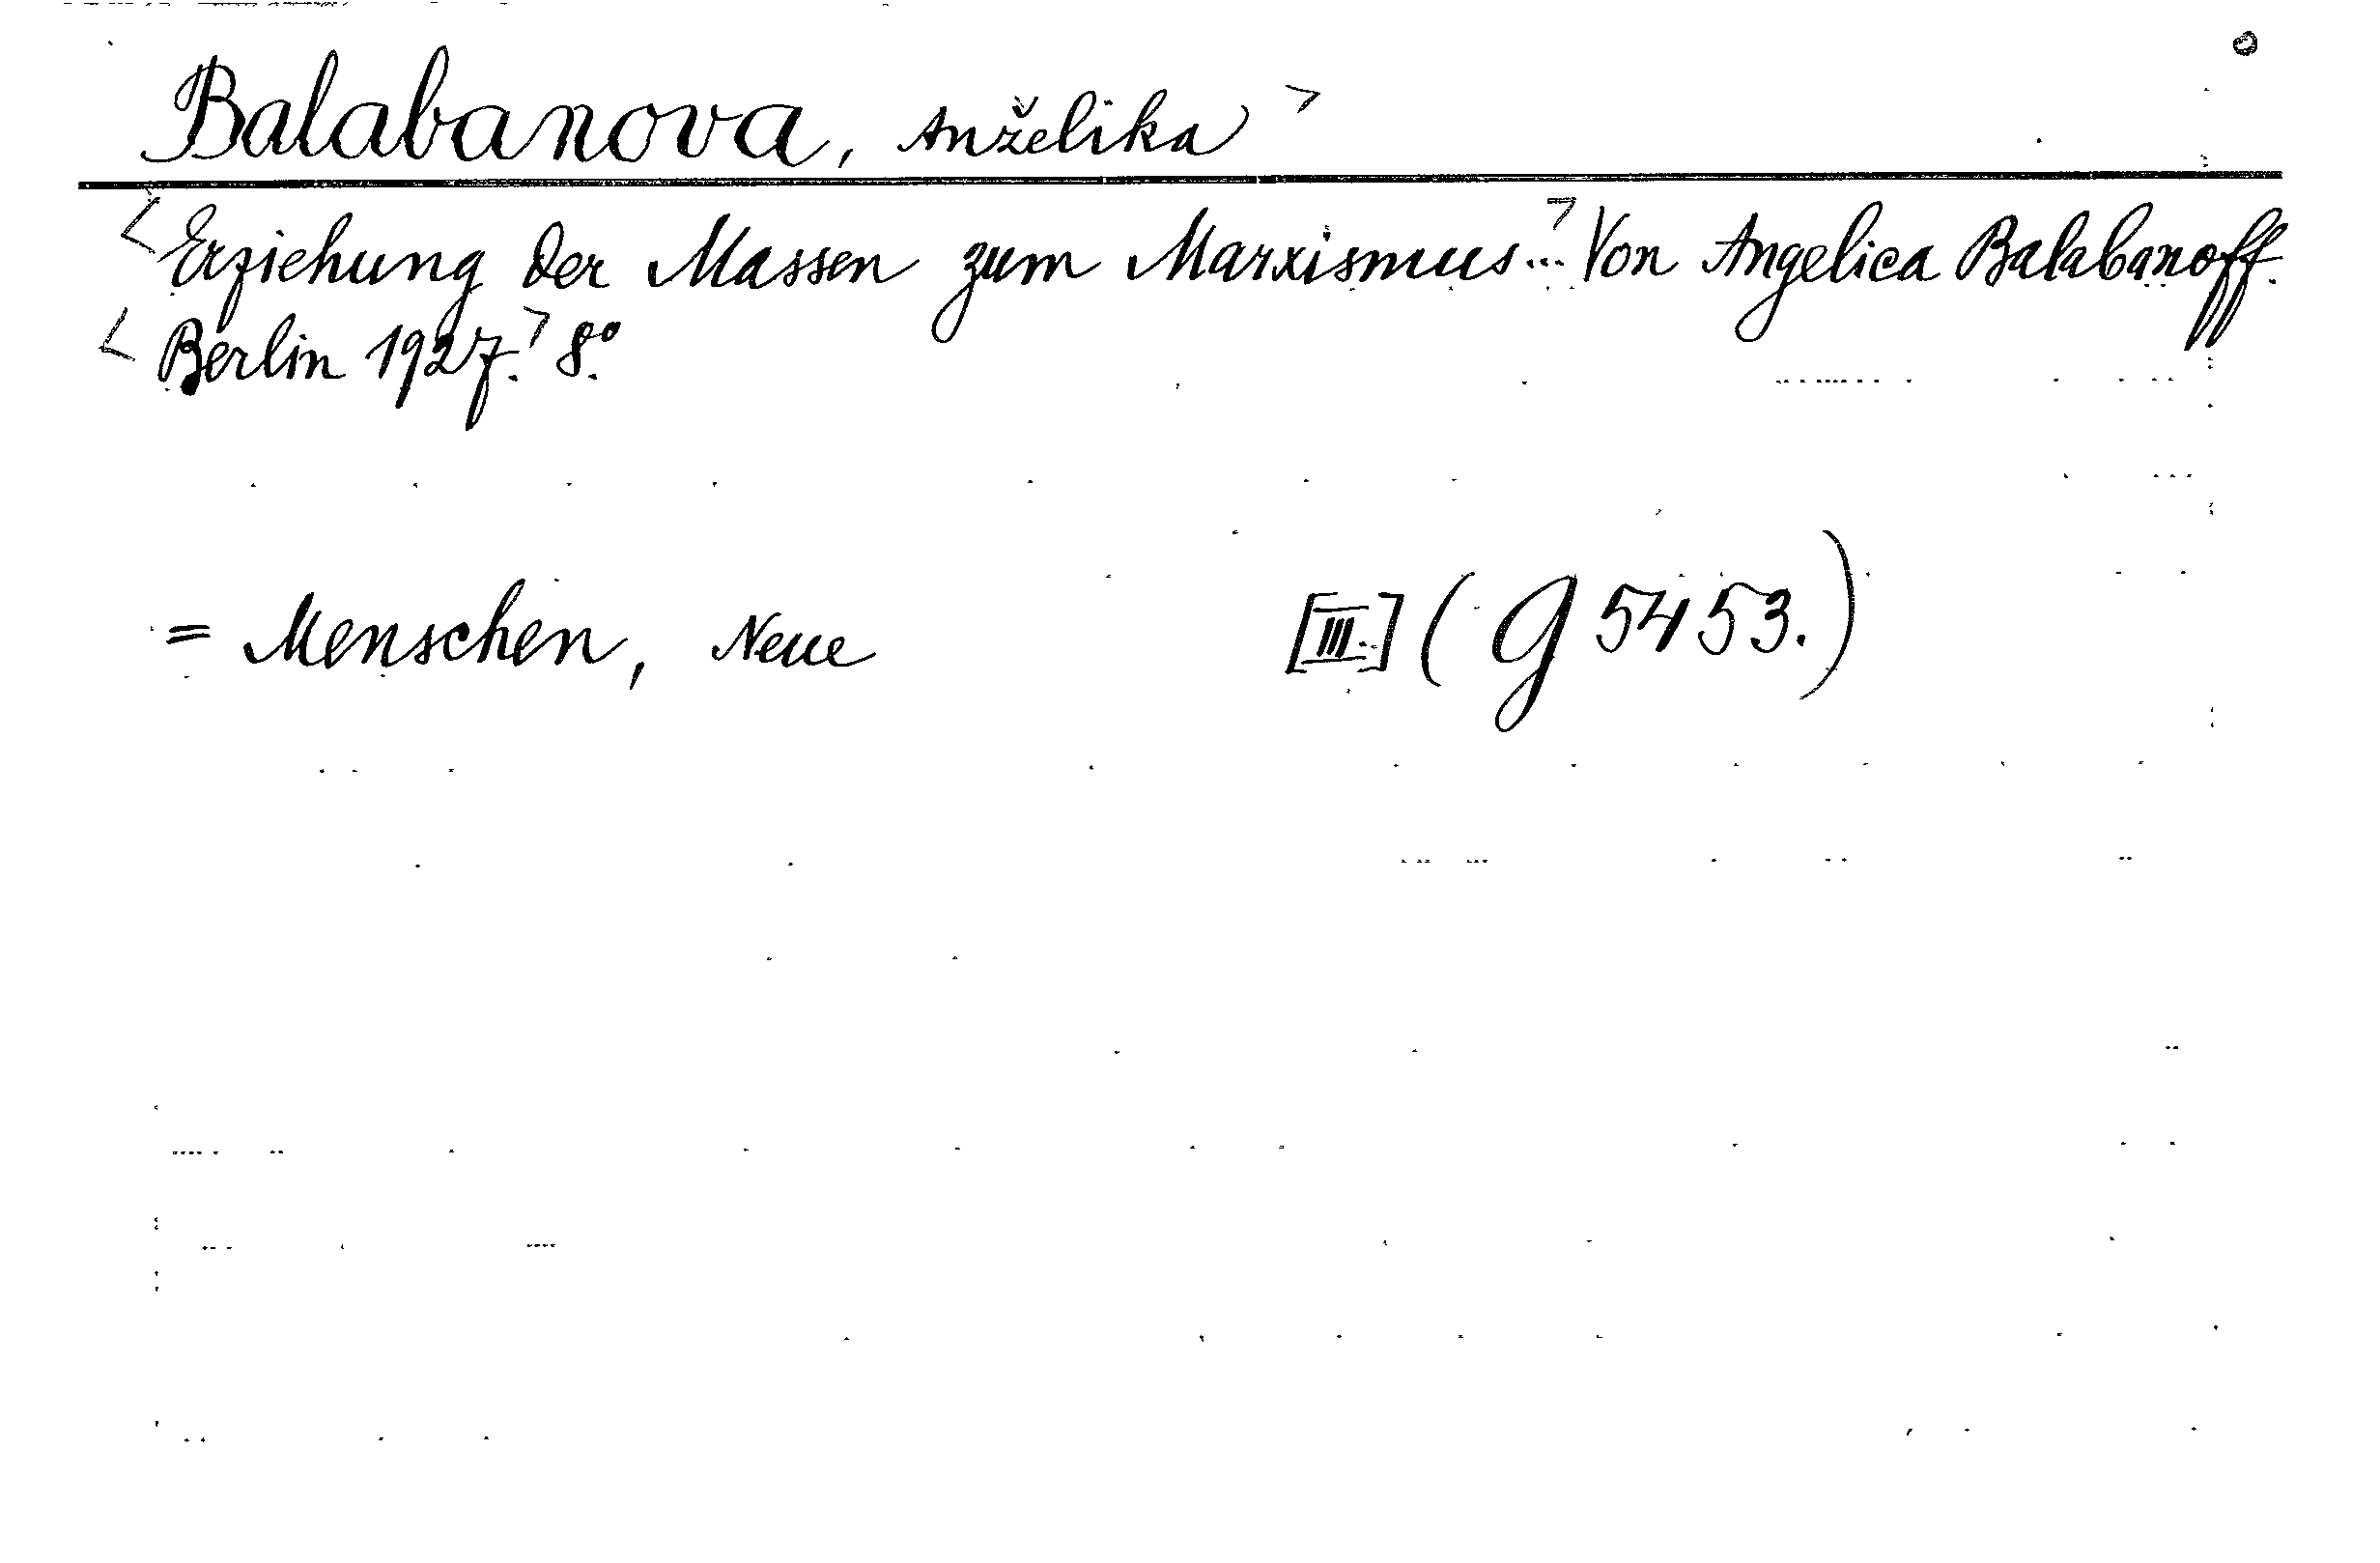 Balabanova, Anželika >
< Erziehung der Massen zum Marxismus...> Von Angelica Balabanoff.
< Berlin 1927.> 8º.
= Menschen, Neue [III.] (G 5453.)